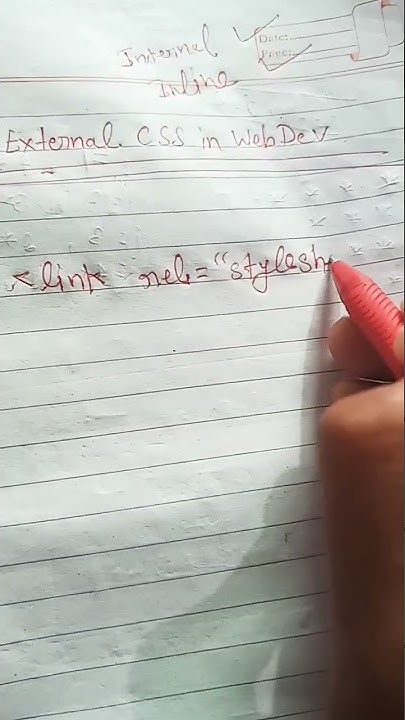 Internal
Date:
Page:
Inline
External CSS in WebDev
<link rel="stylesh